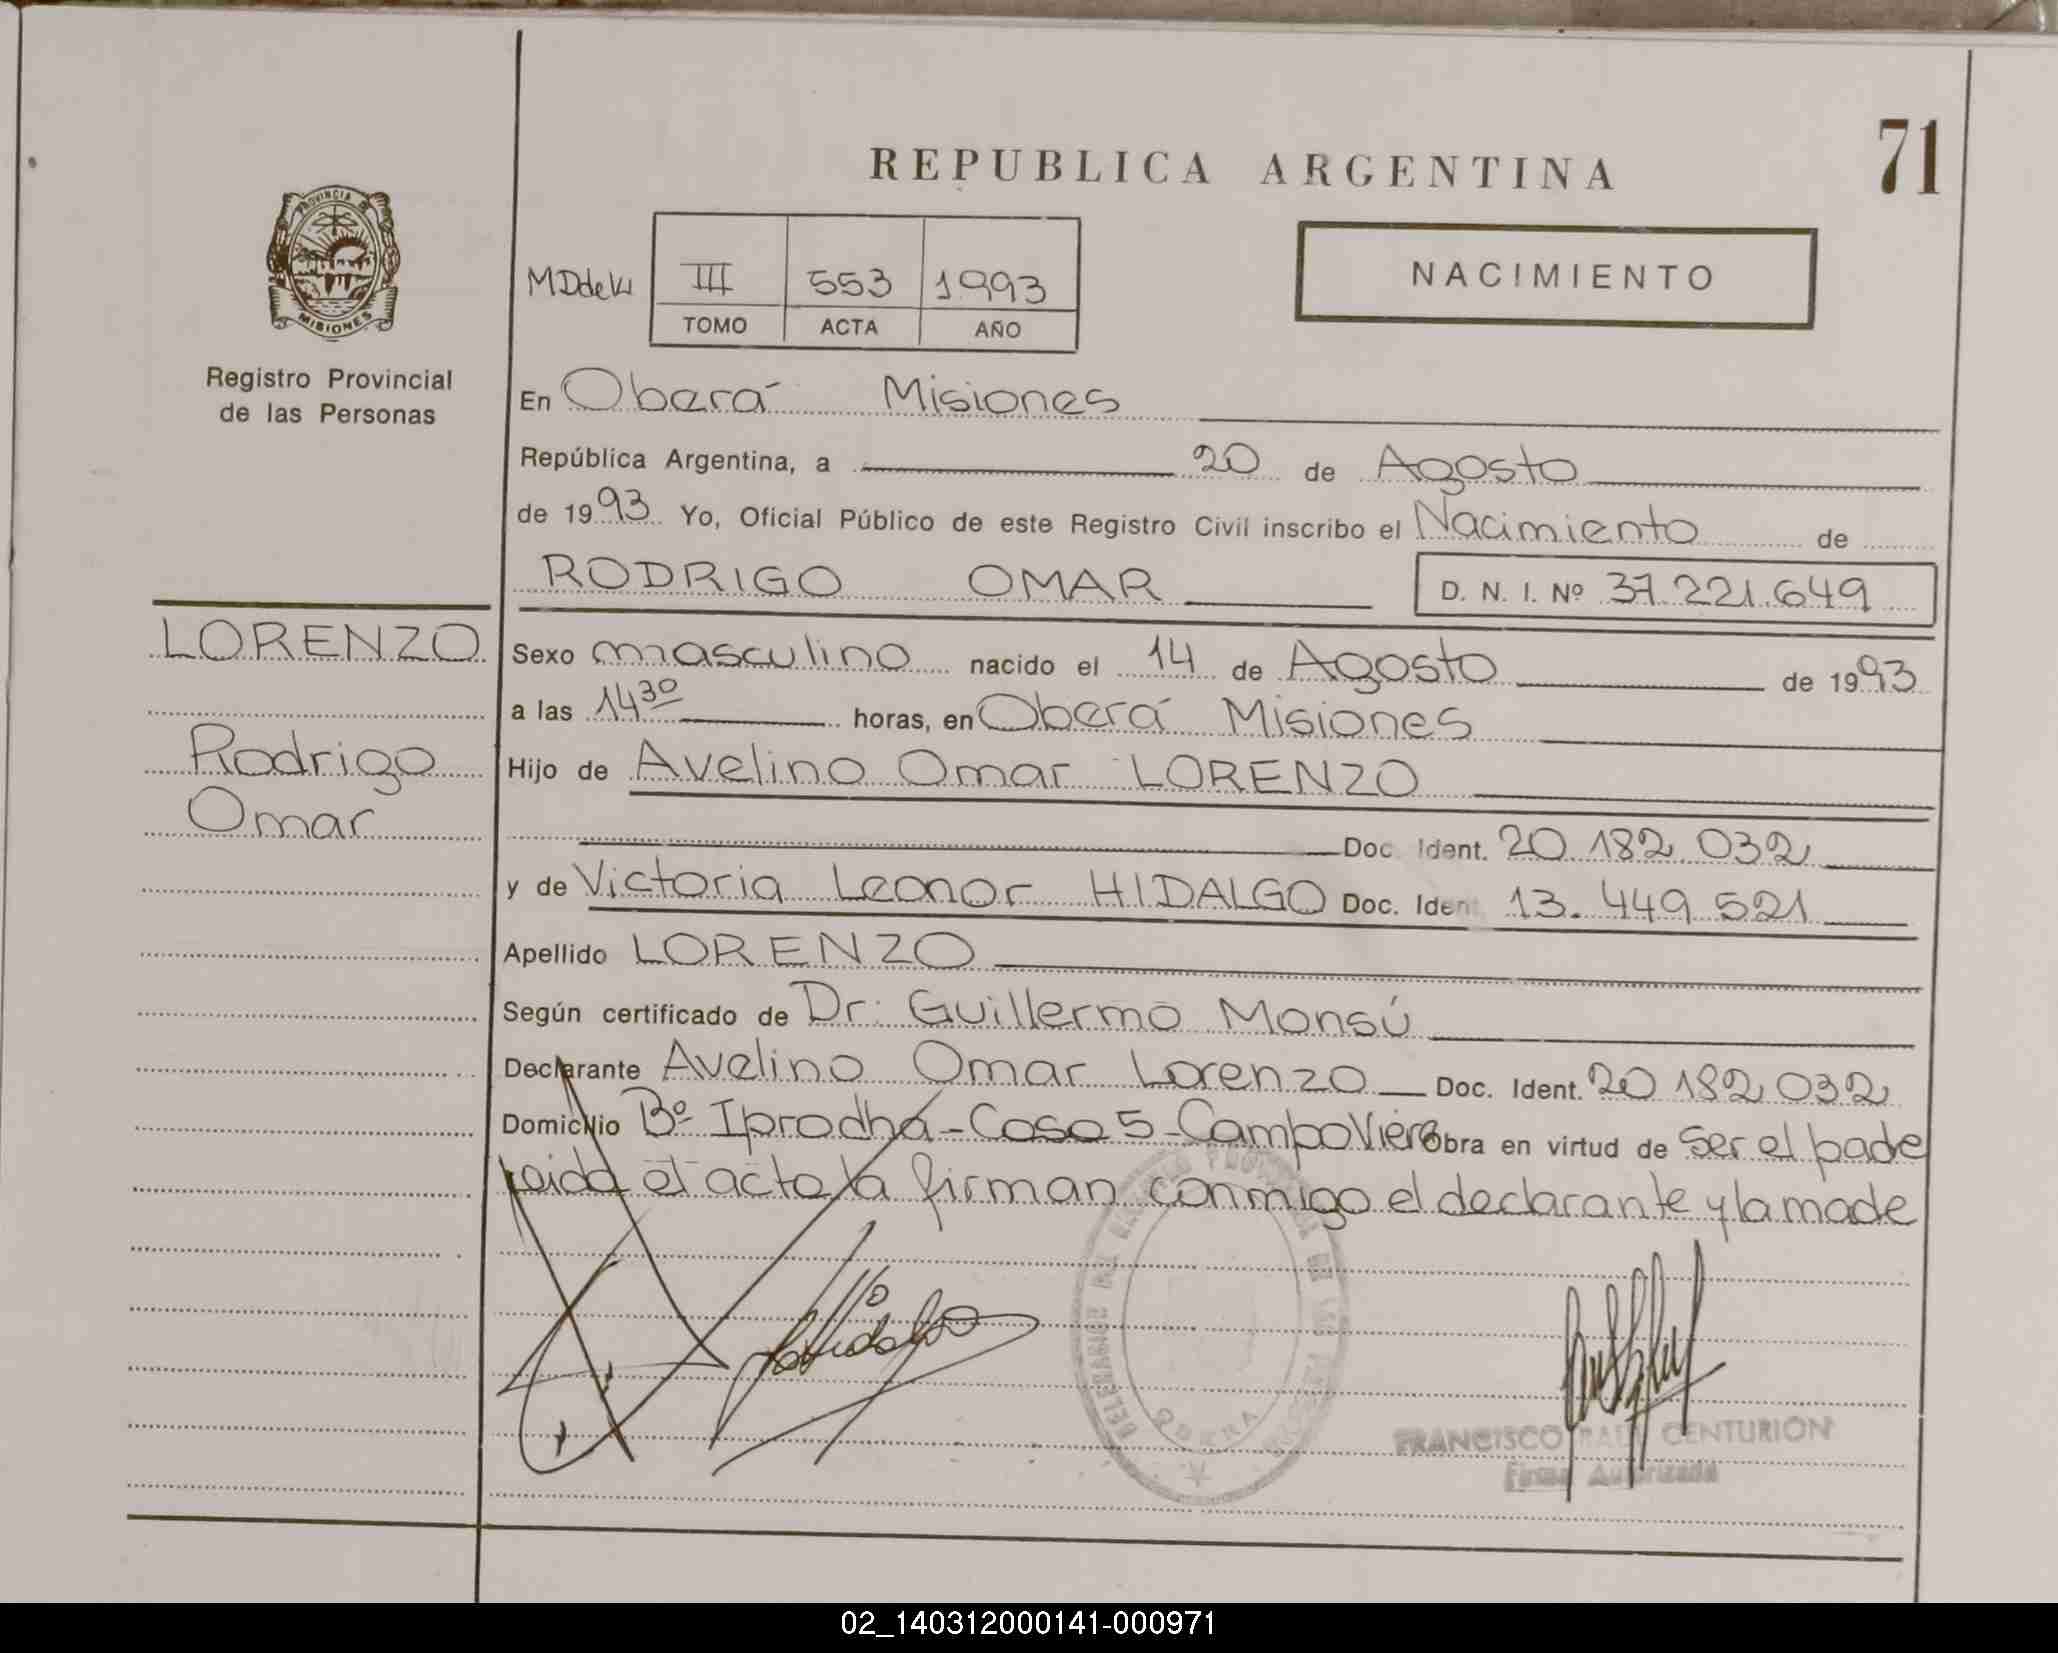 71
REPUBLICA ARGENTINA
PROVINCIA DE
MISIONES
Registro Provincial
de las Personas
III 553 1993
TOMO ACTA AÑO
NACIMIENTO
En Oberá Misiones
República Argentina, a 20 de Agosto
de 1993 Yo, Oficial Público de este Registro Civil inscribo el Nacimiento de
RODRIGO OMAR D. N. I. Nº 37.221.649
LORENZO
Rodrigo
Omar
Sexo masculino nacido el 14 de Agosto de 1993
a las 14 30 horas, en Oberá Misiones
Hijo de Avelino Omar LORENZO
Doc. Ident. 20 182 032
y de Victoria Leonor HIDALGO Doc. Ident. 13. 449 521
Apellido LORENZO
Según certificado de Dr. Guillermo Monsú
Declarante Avelino Omar Lorenzo Doc. Ident. 20 182 032
Domicilio Bº Iprodha - Casa 5 - Campo Viera Obra en virtud de Ser el padre
Leida el acta la firman conmigo el declarante y la madre
DELEGACION DEL REGISTRO PROVINCIAL DE LAS PERSONAS
OBERA
FRANCISCO RAUL CENTURION
Firma Autorizada
02_140312000141-000971